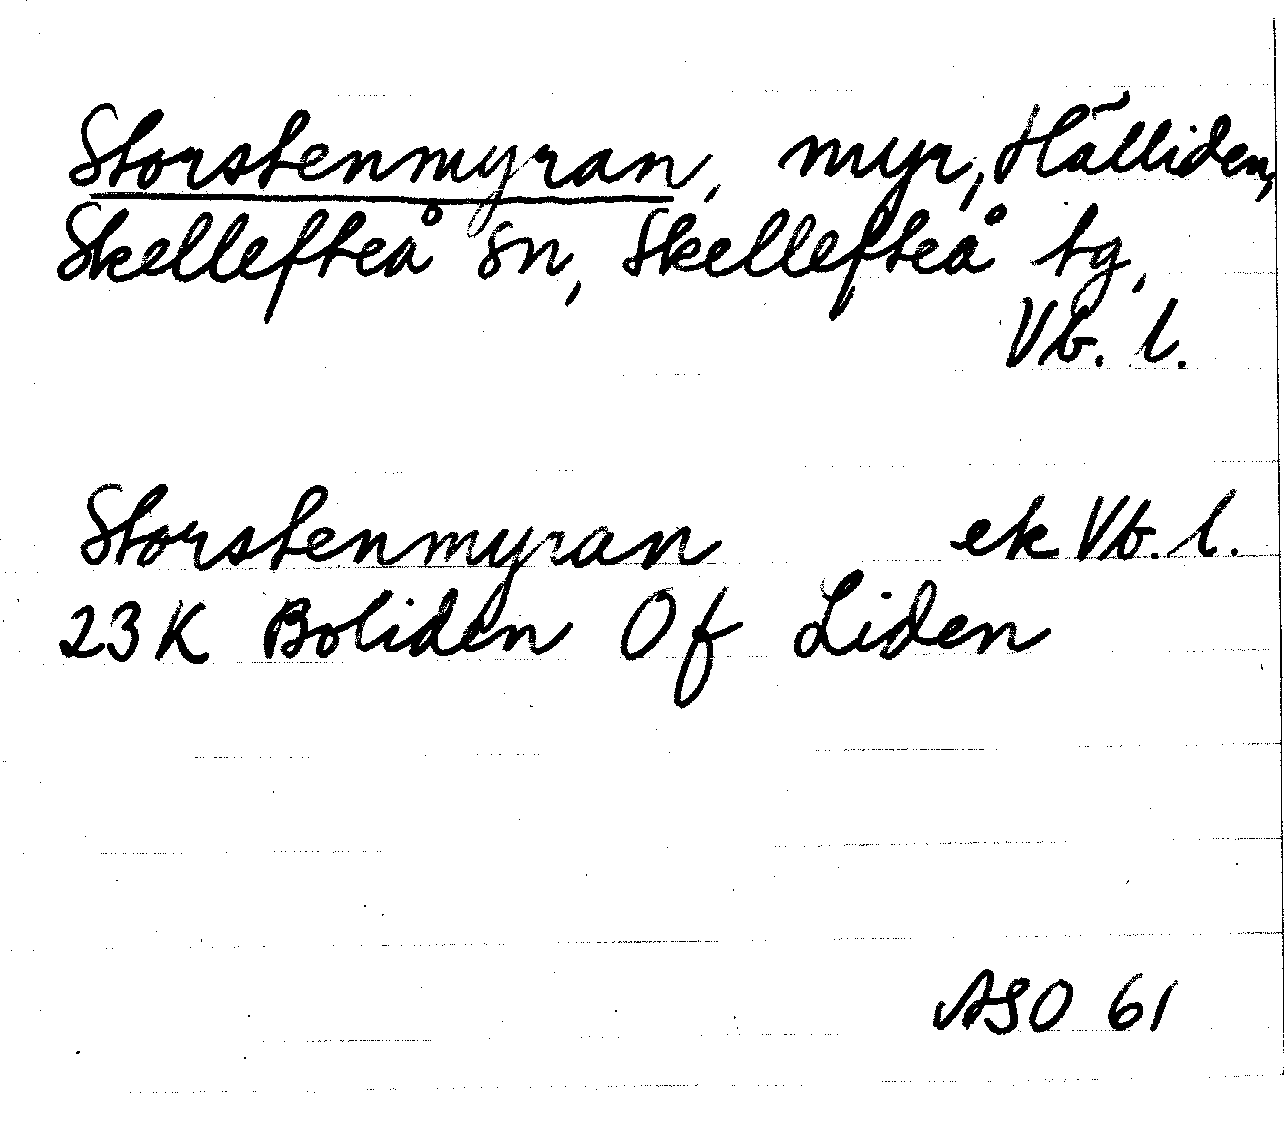 Storstenmyran, myr, Hälliden,
Skellefteå sn, Skellefteå tg,
Vb. l.
Storstenmyran ek Vb. l.
23K Boliden Of Liden
ASO 61